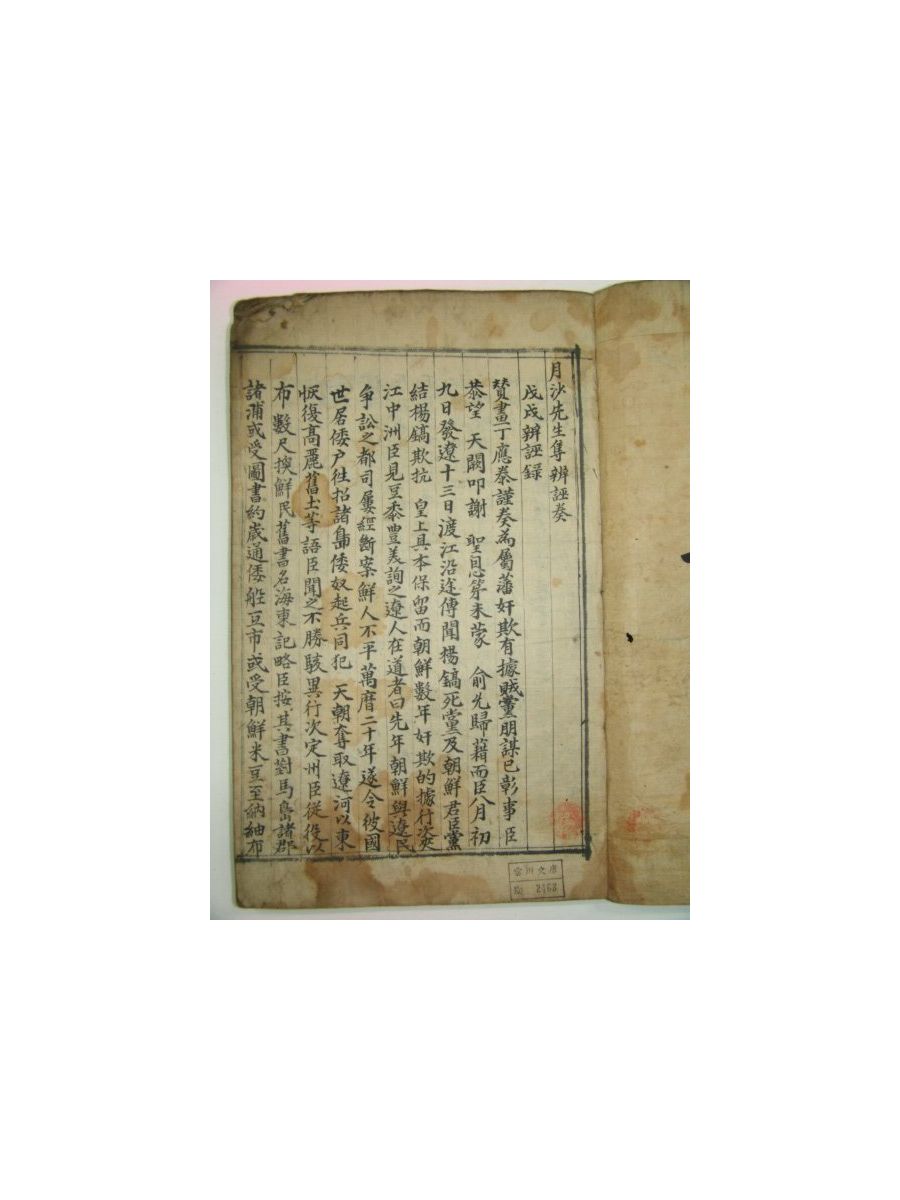 月沙先生集 辨誣奏
戊戌辨誣録
贊畫丁應泰謹奏為屬藩奸欺有據賊黨朋謀已彰事臣
恭望 天闕叩謝 聖恩竽未蒙 俞允歸藉而臣八月初
九日發遼十三日渡江沿途傳聞楊鎬死黨及朝鮮君臣黨
結楊鎬欺抗 皇上具本保留而朝鮮數年奸欺的據行次夾
江中洲臣見豆黍豐美詢之遼人在道者曰先年朝鮮與遼民
争訟之都司屢經斷案鮮人不平萬曆二十年遂令彼國
世居倭户徃招諸島倭奴起兵同犯 天朝奪取遼河以東
恢復高麗舊土等語臣聞之不勝駭異行次定州臣従役以
布數尺換鮮民舊書名海東記略臣按其書對馬島諸郡
諸浦或受圖書約歲通倭舩互市或受朝鮮米豆至納紬布
文庫
2468